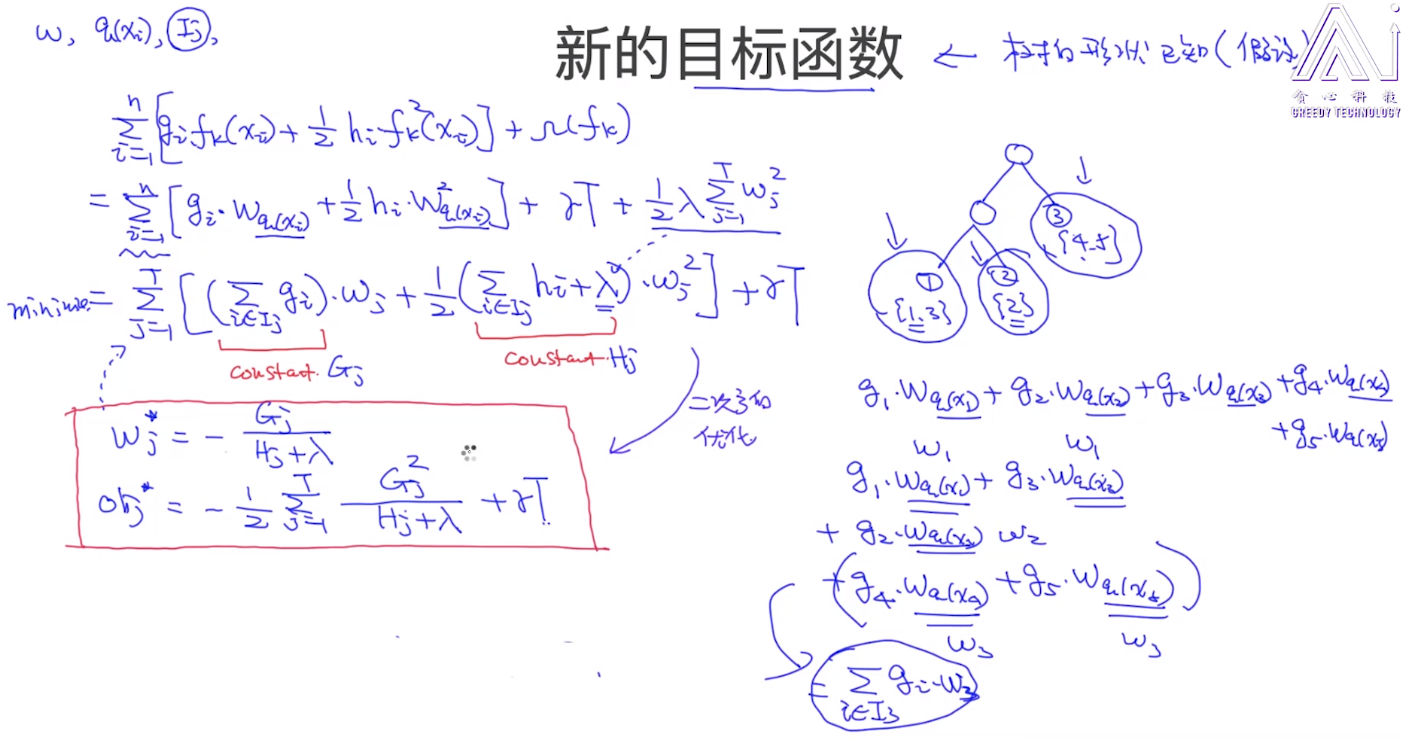 w, q(xᵢ), Iⱼ,
新的目标函数
← 树的形状已知(假设)
贪心科技
GREEDY TECHNOLOGY
∑ᵢ₌₁ⁿ [gᵢ fₖ(xᵢ) + 1/2 hᵢ fₖ²(xᵢ)] + Ω(fₖ)
= ∑ᵢ₌₁ⁿ [gᵢ · w_q(xᵢ) + 1/2 hᵢ · w²_q(xᵢ)] + γT + 1/2 λ ∑ⱼ₌₁ᵀ wⱼ²
= ∑ⱼ₌₁ᵀ [(∑_{i∈Iⱼ} gᵢ) · wⱼ + 1/2 (∑_{i∈Iⱼ} hᵢ + λ) · wⱼ²] + γT
constant. Gⱼ
constant. Hⱼ
二次函数的
优化
wⱼ* = - Gⱼ / (Hⱼ + λ)
obj* = - 1/2 ∑ⱼ₌₁ᵀ Gⱼ² / (Hⱼ + λ) + γT
③
{4.5}
①
{1.3}
②
{2}
g₁ · w_q(x₁) + g₂ · w_q(x₂) + g₃ · w_q(x₃) + g₄ · w_q(x₄)
+ g₅ · w_q(x₅)
w₁ w₁
g₁ · w_q(x₁) + g₃ · w_q(x₃)
+ g₂ · w_q(x₂) w₂
+ (g₄ · w_q(x₄) + g₅ · w_q(x₅))
w₃ w₃
= ∑_{i∈I₃} gᵢ · w₃